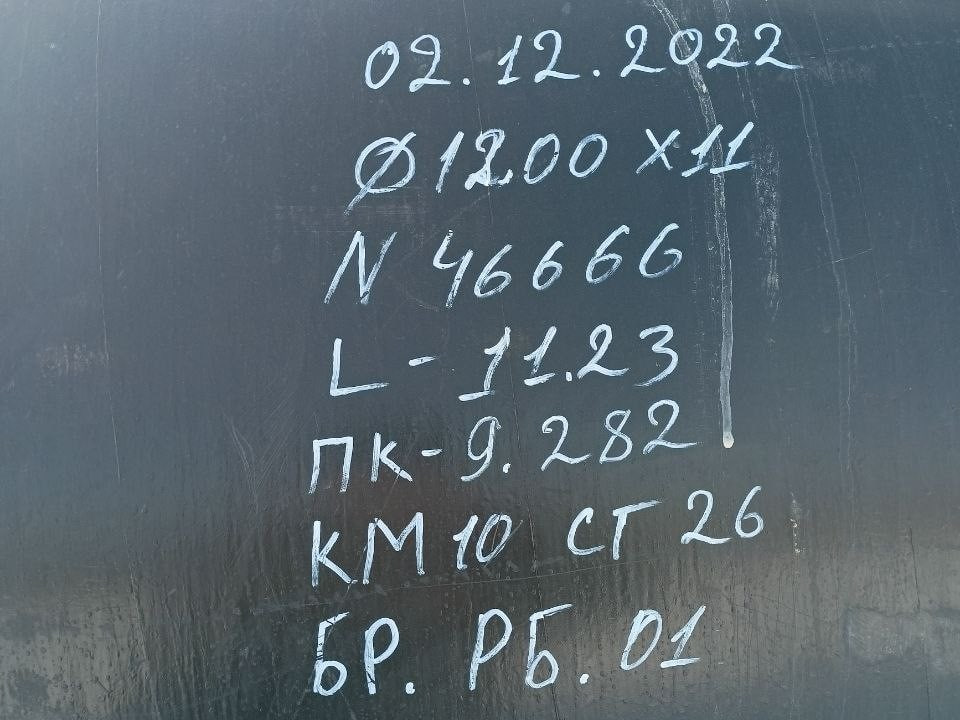 02.12.2022
Ø1200 X11
N 46666
L - 11.23
ПК - 9.282
КМ 10 СТ 26
БР. РБ.01